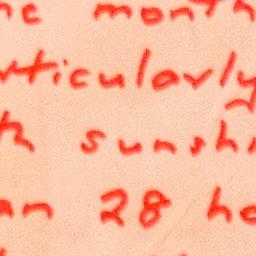 month
ticularly
sunshi
an 28 ho